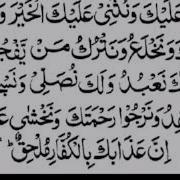 عَلَيْكَ وَنُثْنِيْ عَلَيْكَ الْخَيْرَ
وَنَخْلَعُ وَنَتْرُكُ مَنْ يَّفْجُ
نَعْبُدُ وَلَكَ نُصَلِّيْ
وَنَرْجُوْا رَحْمَتَكَ وَنَخْشٰى
اِنَّ عَذَابَكَ بِالْكُفَّارِ مُلْحِقٌ